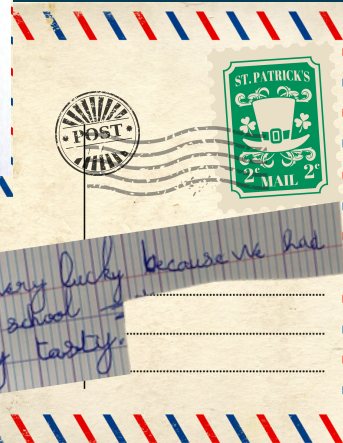 ST. PATRICK'S
POST
2c MAIL 2c
very lucky because we had
school
tasty.